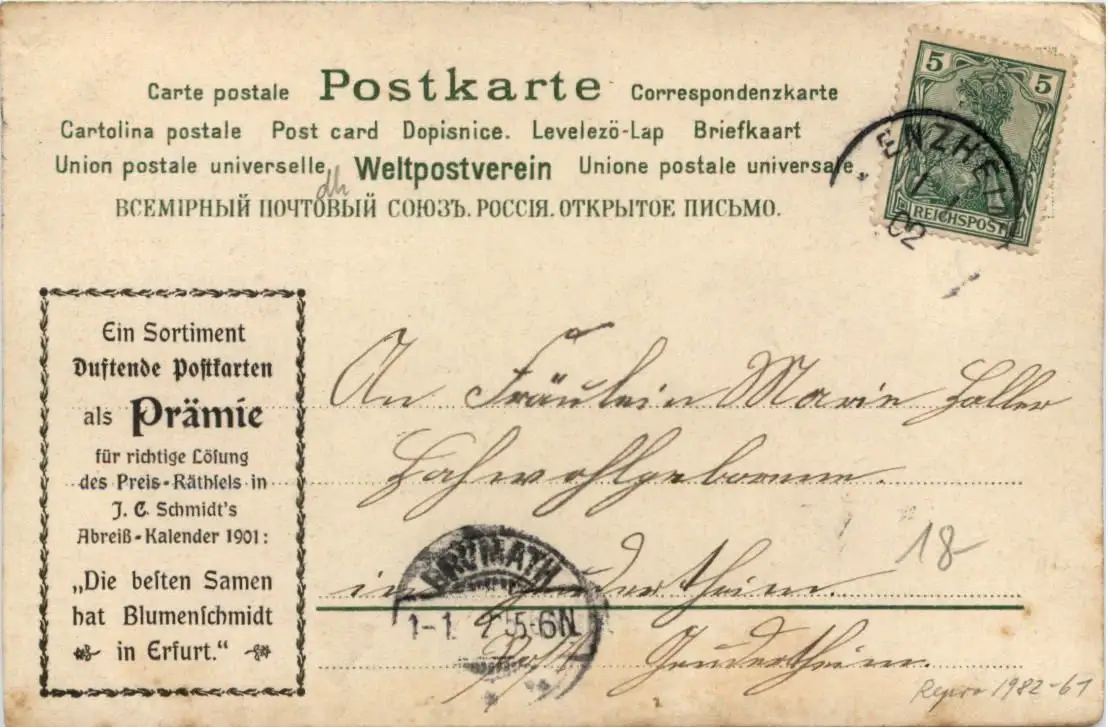 Carte postale Postkarte Correspondenzkarte
Cartolina postale Post card Dopisnice. Levelező-Lap Briefkaart
Union postale universelle Weltpostverein Unione postale universale
ВСЕМIРНЫЙ ПОЧТОВЫЙ СОЮЗЪ. РОССIЯ. ОТКРЫТОЕ ПИСЬМО.
5 5
REICHSPOST
ENZHEI
1 1
02
Ein Sortiment
Duftende Postkarten
als Prämie
für richtige Lösung
des Preis-Räthsels in
J. C. Schmidt's
Abreiß-Kalender 1901:
„Die besten Samen
hat Blumenschmidt
in Erfurt."
An Fräulein Marie Haller
Hochwohlgeboren.
in Geudertheim.
Post Geudertheim.
BRUMATH
1-1 2 5-6N
18-
Repro 1982-61